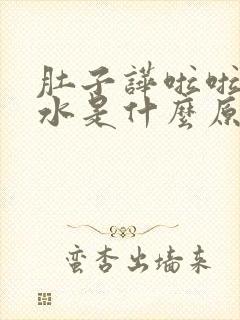 肚子譁啦啦
水是什麼原
蛮杏出墙来